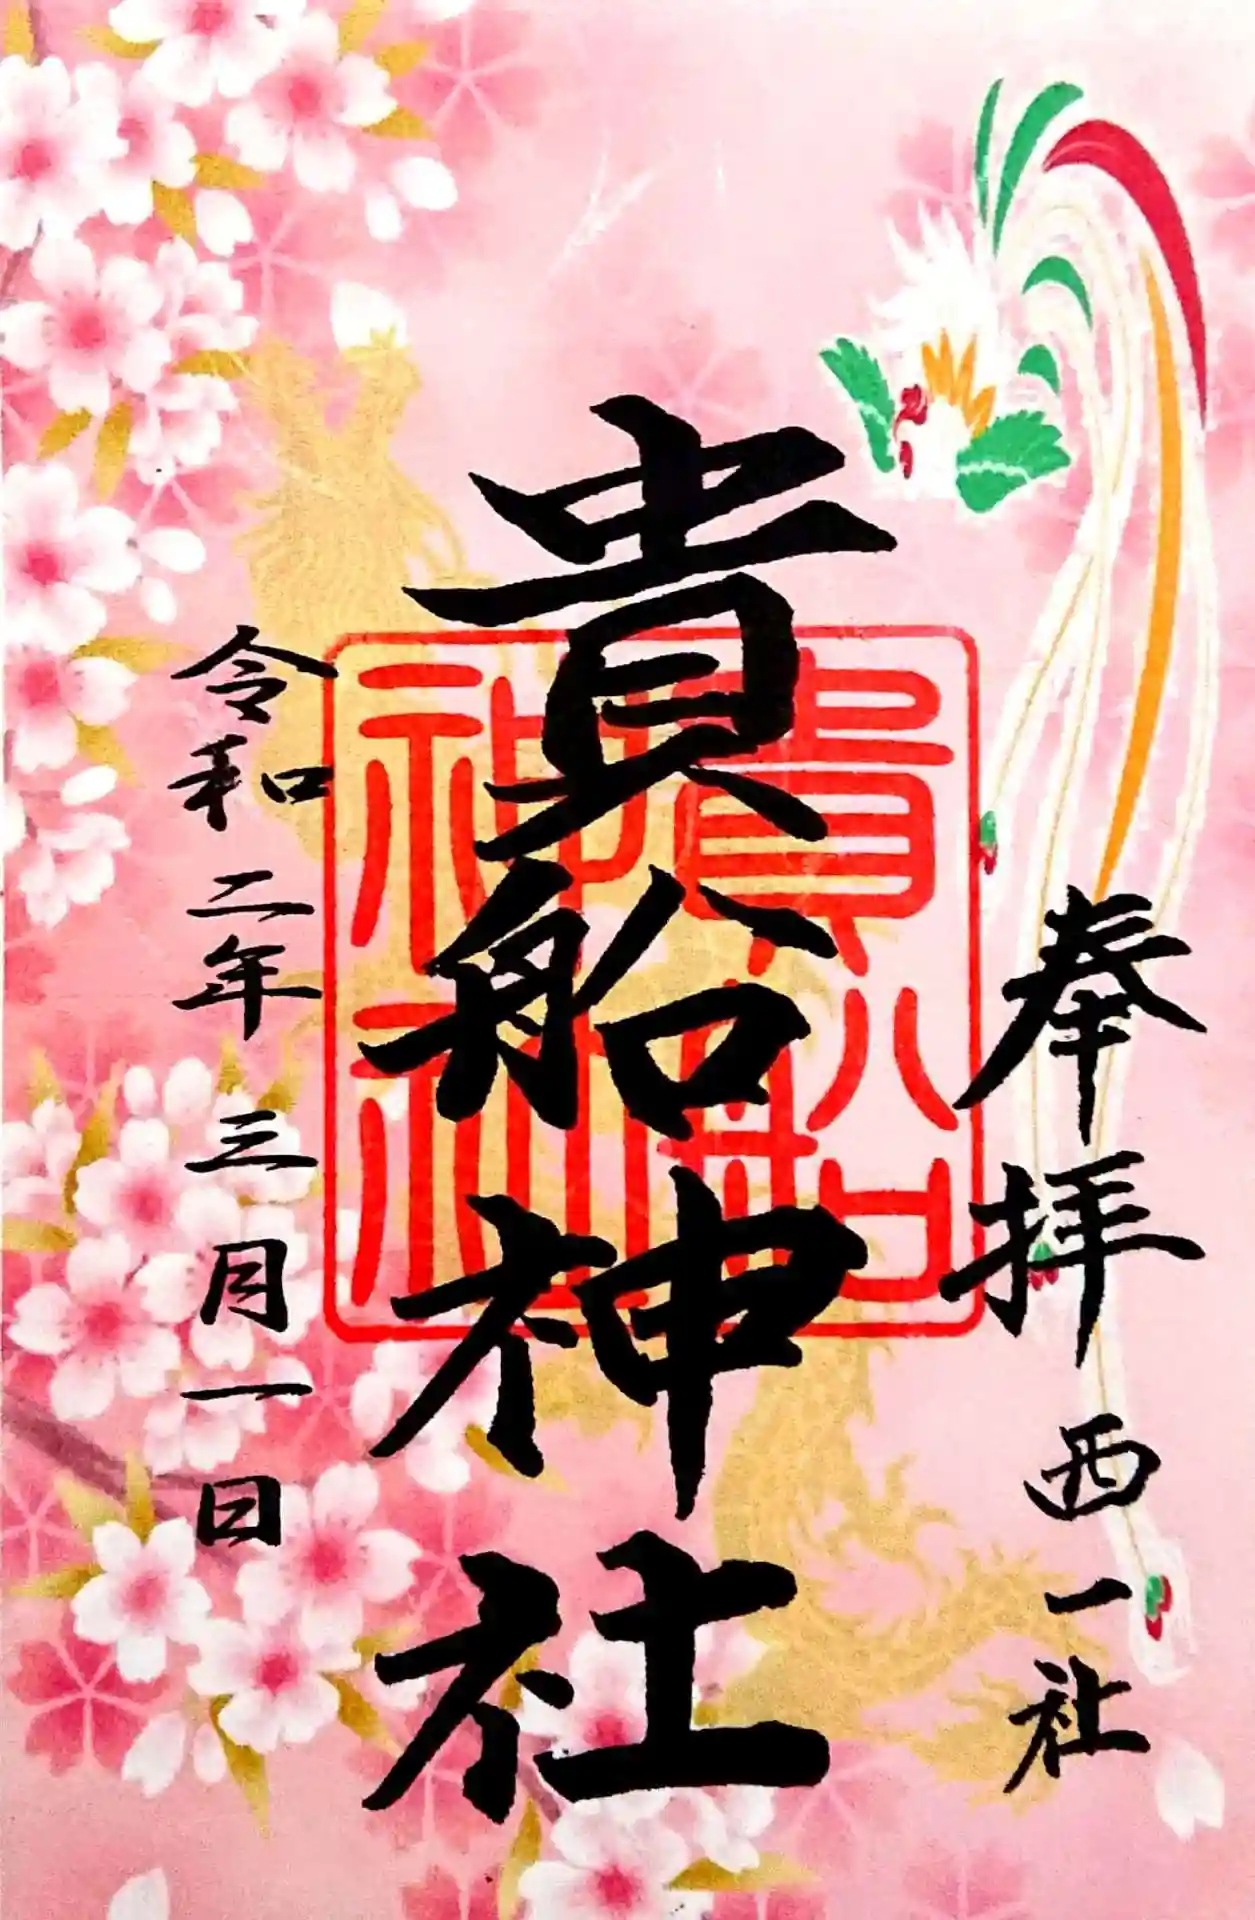 奉拝 西一社
貴船神社
貴船
神社
令和二年三月一日